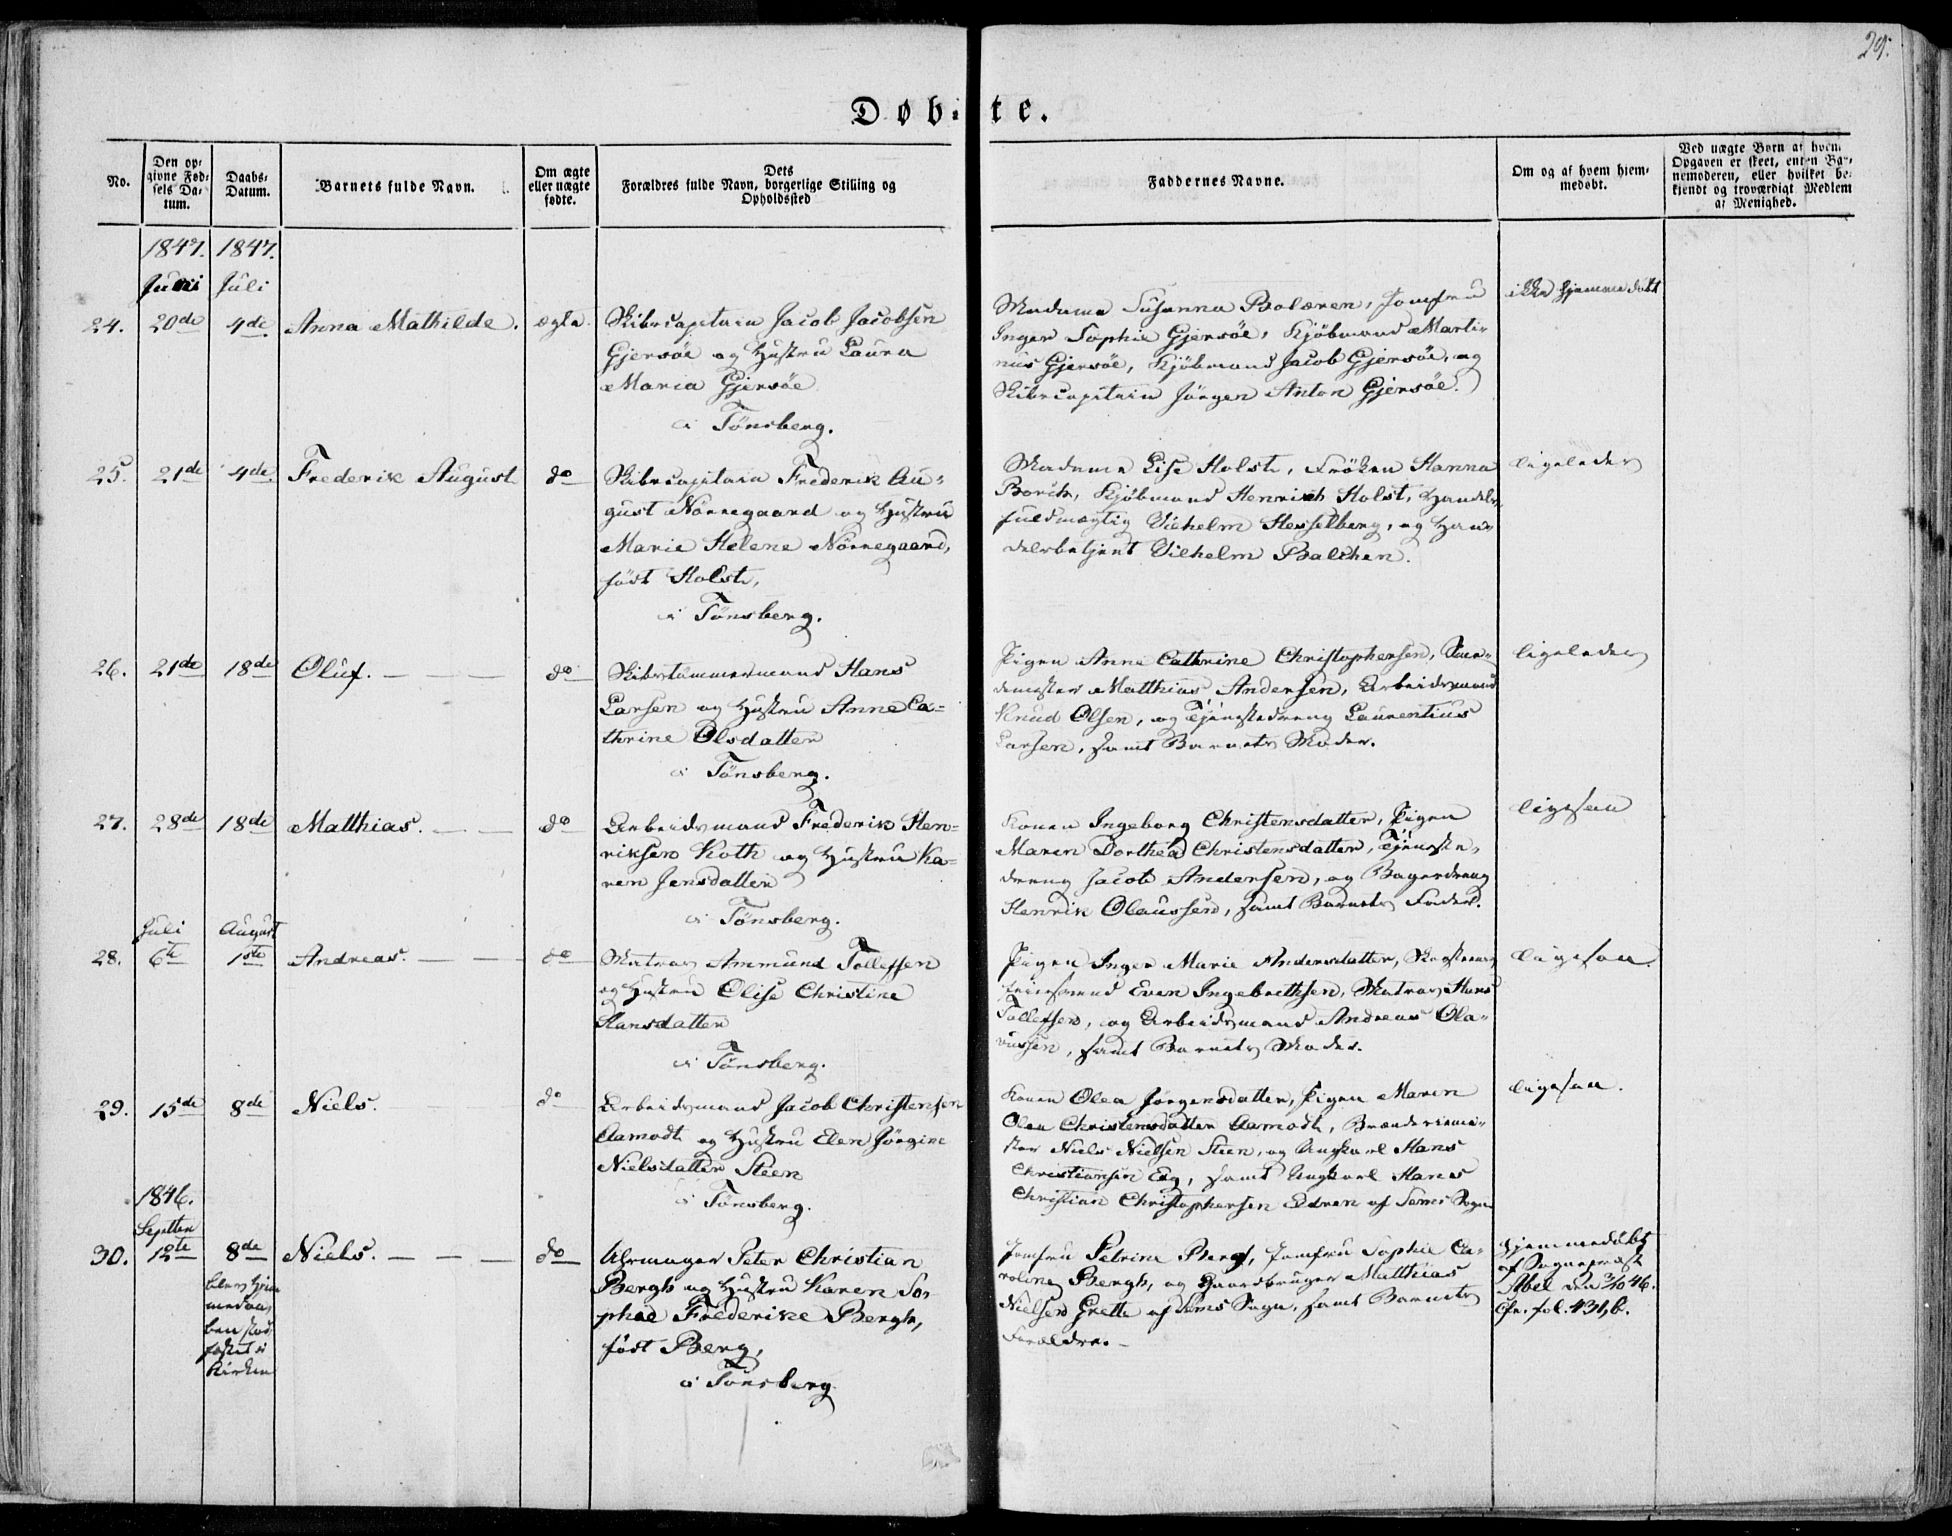 29.
Døb-te.
No.
Den op-
givne Fød-
sels Da-
tum.
Daabs-
Datum.
Barnets fulde Navn.
Om ægte
eller uægte
fødte.
Dets
Forældres fulde Navn, borgerlige Stilling og
Opholdssted
Faddernes Navne.
Om og af hvem hjem-
medøbt.
Ved uægte Børn af hvem
Opgaven er skeet, enten Bar-
nemoderen, eller hvilket be-
kjendt og troværdigt Medlem
af Menighed.
1847. 1847.
Juni Juli
24. 20de 4de Anna Mathilde. ægte.
Skibscapitain Jacob Jacobsen
Gjersöe og Hustru Laura
Maria Gjersöe
i Tönsberg.
Madame Susanna Bolæren, Jomfru
Inger Sophie Gjersöe, Kjöbmand Marti-
nus Gjersöe, Kjöbmand Jacob Gjersöe, og
Skibscapitain Jörgen Anton Gjersöe.
ikke hjemmedöbt
25. 21de 4de Frederik August do
Skibscapitain Frederik Au-
gust Nörregaard og Hustru
Marie Helene Nörregaard,
födt Holst,
i Tönsberg.
Madame Lise Holst, Fröken Hanna
Borch, Kjöbmand Henrich Holst, Handels-
fuldmægtig Vilhelm Hesselberg, og Han-
delsbetjent Vilhelm Balchen.
ligeledes
26. 21de 18de Oluf. do
Skibstömmermand Hans
Larsen og Hustru Anne Ca-
thrine Olsdatter
i Tönsberg.
Pigen Anne Cathrine Christophersen, Sme-
demester Matthias Andersen, Arbeidsmand
Knud Olsen, og Tjenestedreng Laurentius
Larsen, samt Barnets Moder.
ligeledes
27. 28de 18de Matthias. do
Arbeidsmand Frederik Hen-
riksen Koth og Hustru Ka-
ren Jensdatter
i Tönsberg.
Konen Ingeborg Christensdatter, Pigen
Maren Dorthea Christensdatter, Tjeneste-
dreng Jacob Andersen, og Bagerdreng
Henrik Olaussen, samt Barnets Fader.
ligesaa
Juli August
28. 6te 1ste Andreas. do
Matros Ammund Tollefsen
og Hustru Elise Christine
Hansdatter
i Tönsberg.
Pigen Inger Marie Andersdatter, Skorsteens-
feiersvend Even Ingebrethsen, Matros Hans
Tollefsen, og Arbeidsmand Andreas Ola-
vussen, samt Barnets Moder.
ligesaa.
29. 15de 8de Niels. do
Arbeidsmand Jacob Christensen
Aamodt og Hustru Elen Jörgine
Nielsdatter Steen
i Tönsberg.
Konen Olea Jörgensdatter, Pigen Maren
Olea Christensdatter Aamodt, Brænderieme-
ster Niels Nielsen Steen, og Ungkarl Hans
Christiansen Eeg, samt Ungkarl Hans
Christian Christophersen Eedren af Sems Sogn
ligesaa.
1846.
Septbr
30. 12te 8de Niels. do
medaa-
ben stad-
fæstet i
Kirken
Uhrmager Peter Christian
Bergh og Hustru Karen So-
phie Frederike Bergh,
födt Berg,
i Tönsberg
Jomfru Petrine Bergh, Jomfru Sophie Ca-
roline Bergh, og Gaardbruger Matthias
Nielsen Grette af Sems Sogn, samt Barnets
Forældre.
Hjemmedöbt
af Sognepræst
Abel den 2/10 46.
Cfr. fol. 431, b.